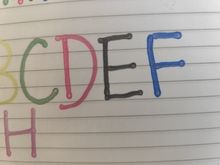 BCDEF
H